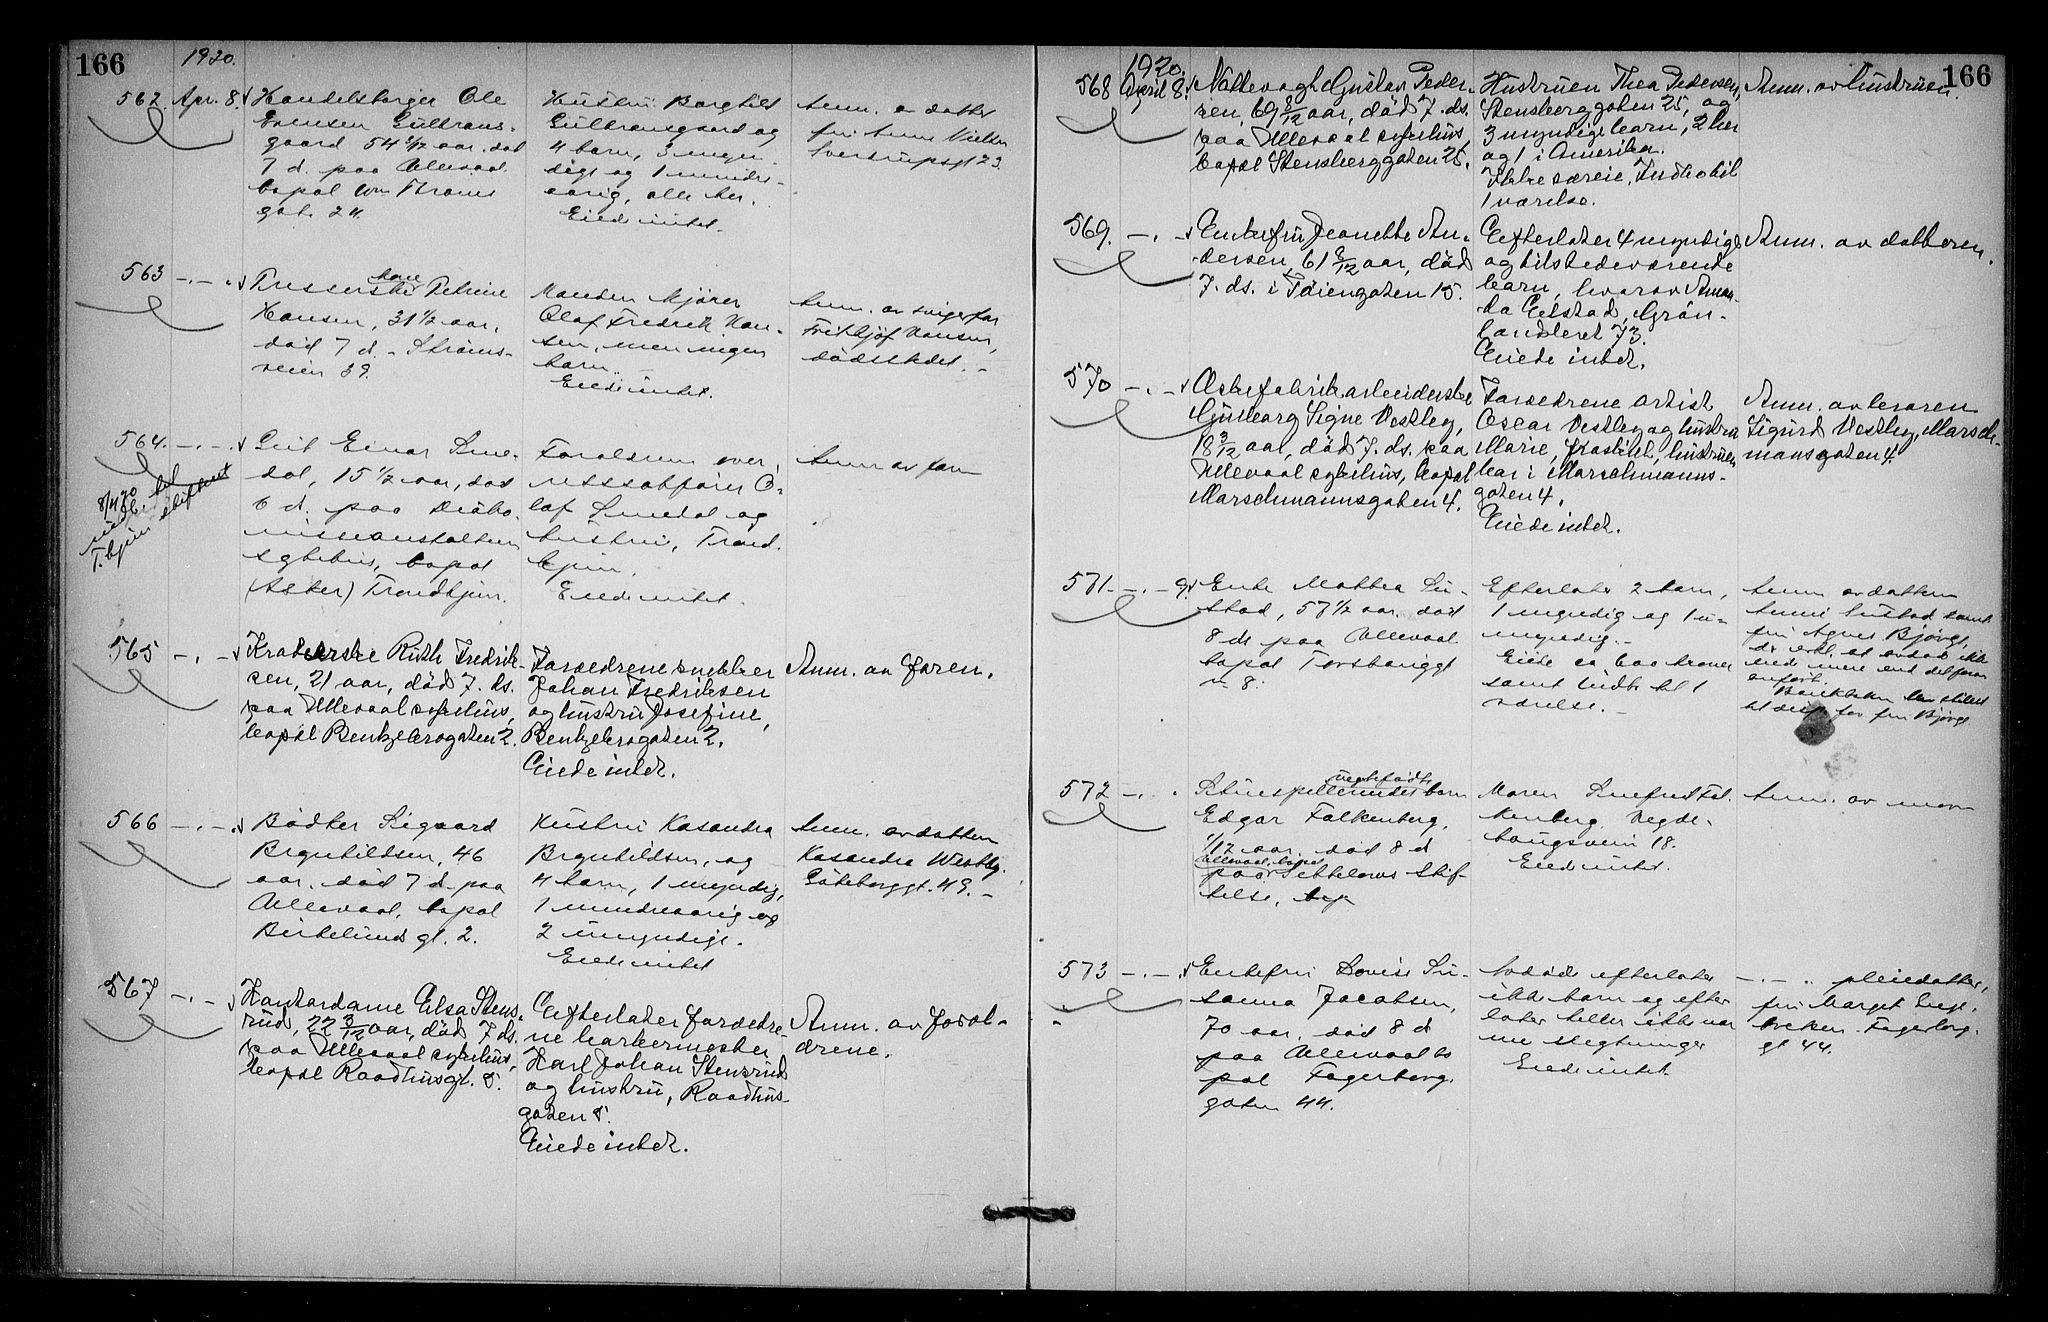 166
1920.
562. Apr. 8.
Handelsborger Ole
Evensen Gulbrans-
gaard 54 1/2 aar. død
7 d. paa Ullevaal
bopæl Wm Thranes
gate 24.
Hustru Borghild
Gulbransgaard og
4 barn, 3 myn-
dige og 1 mindre-
aarig, alle her.
Eied intet.
Anm. av datter
fru Anna Nielsen
Sverdrupsgt 23.
563 -.-
Presserske Petrine
Hansen, 31 1/2 aar,
død 7 d. Strøms-
veien 39.
Manden kjører
Olaf Fredrik Han-
sen, men ingen
barn.
Eied intet.
Anm. av svigerfar
Fritjof Hansen,
dødsstedet.
564. -.-
8/4 20
Einar
dal, 15 1/2 aar, død
6 d. paa Diako-
nisseanstaltens
sykehus, bopæl
(Asker) Trondhjem.
Forældrene over-
retssakfører O-
laf og
hustru, Trond-
hjem.
Eied intet.
Anm av faren
565 -.-
Ruth Fredrik-
sen, 21 aar, død 7. ds.
paa Ullevaal sykehus,
bopæl Bentzebrogaten 2.
Forældrene snekker
Johan Fredriksen
og hustru Josefine,
Bentzebrogaten 2.
Eiede intet.
Anm. av faren.
566 -.-
Bødker Sigvard
Brynhildsen, 46
aar. død 7 d. paa
Ullevaal, bopæl
Birkelunds gt. 2.
Hustru Kasandra
Brynhildsen, og
4 barn, 1 myndig,
1 mindreaarig og
2 umyndige.
Eied intet
Anm. av datteren
Kasandra Westby,
Gøteborggt. 49.
567 -.-
Kontordame Elsa Stens-
rud, 22 3/12 aar, død 7 ds.
paa Ullevaal sykehus,
bopæl Raadhusgt. 8.
Efterlater foræld-
ne barbermester
Karl Johan Stensrud
og hustru, Raadhus-
gaten 8.
Eiede intet.
Anm. av foræl-
drene.
166
1920.
568 April 8.
Nattevagt Gustav Peder-
sen, 69 8/12 aar, død 7. ds.
paa Ullevaal sykehus,
bopæl Stensberggaten 25.
Hustruen Thea Pedersen,
Stensberggaten 25, og
3 myndige barn, 2 her
og 1 i Amerika.
Ikke særeie. Indbo til
1 værelse.
Anm. av hustruen.
569. -.-
Enkefru Jeanette An-
dersen, 61 8/12 aar, død
7. ds. i Tøiengaten 15.
Efterlater 4 myndige
og tilstedeværende
barn, hvorav Aman-
da Eilstad, Grøn-
landsleret 73.
Eiede intet.
Anm. av datteren.
570 -.-
Æskefabrikarbeiderske
Signe Vestley,
18 3/12 aar, død 7. ds. paa
Ullevaal sykehus, bopæl
Marschmannsgaten 4.
Forældrene artist
Oscar Vestley og hustru
Marie, fraskilt, hustruen
bor i Marschmanns-
gaten 4.
Eiede intet.
Anm. av broren
Sigurd Vestley, Marsch-
mannsgaten 4.
571. -.- 9.
Enke Mathea Li-
stad, 57 1/2 aar. død
8 ds paa Ullevaal
bopæl
no 8.
Efterlater 2 barn,
1 myndig og 1 u-
myndig.
Eiede ca. 600 kroner
samt indbo til 1
værelse.
Anm av datteren
samt
fru Agnes Bjørge,
at avdøde ikke
eied mere end det foran
anført.
Bankboken
for fru Bjørge
572 -.-
Skuespillerindes barn
Edgar Falkenberg,
1/12 aar, død 8 d
Ullevaal, bopæl
paa Sebbelows Stif-
telse,
Moren Fal-
kenberg, Vegde-
haugsvein 18.
Eied intet.
Anm. av moren
573 -.-
Enkefru Lovise Su-
sanna Jacobsen,
70 aar, død 8 d
paa Ullevaal bo
pæl Fagerborg-
gaten 44.
Avdøde efterlater
ikke barn og efter
later heller ikke nær
me slegtninger
Eied intet.
-.- pleiedatter,
fru Margit
Fagerborg-
gt 44.